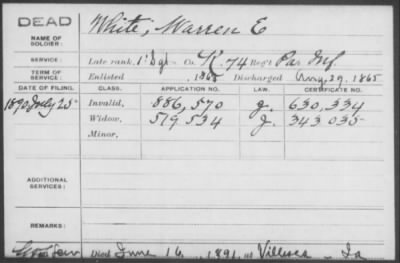 DEAD
White, Warren E
NAME OF SOLDIER:
SERVICE: Late rank, 1" Sgt Co. K, 74 Reg't Pa. Inf
TERM OF SERVICE: Enlisted , 1865 Discharged Aug. 29, 1865
DATE OF FILING. CLASS. APPLICATION NO. LAW. CERTIFICATE NO.
1890 July 25 Invalid, 886,570 J. 630,334
Widow, 519534 J. 343035
Minor,
ADDITIONAL SERVICES:
REMARKS:
Died June 16, 1891, at Villisca Ia